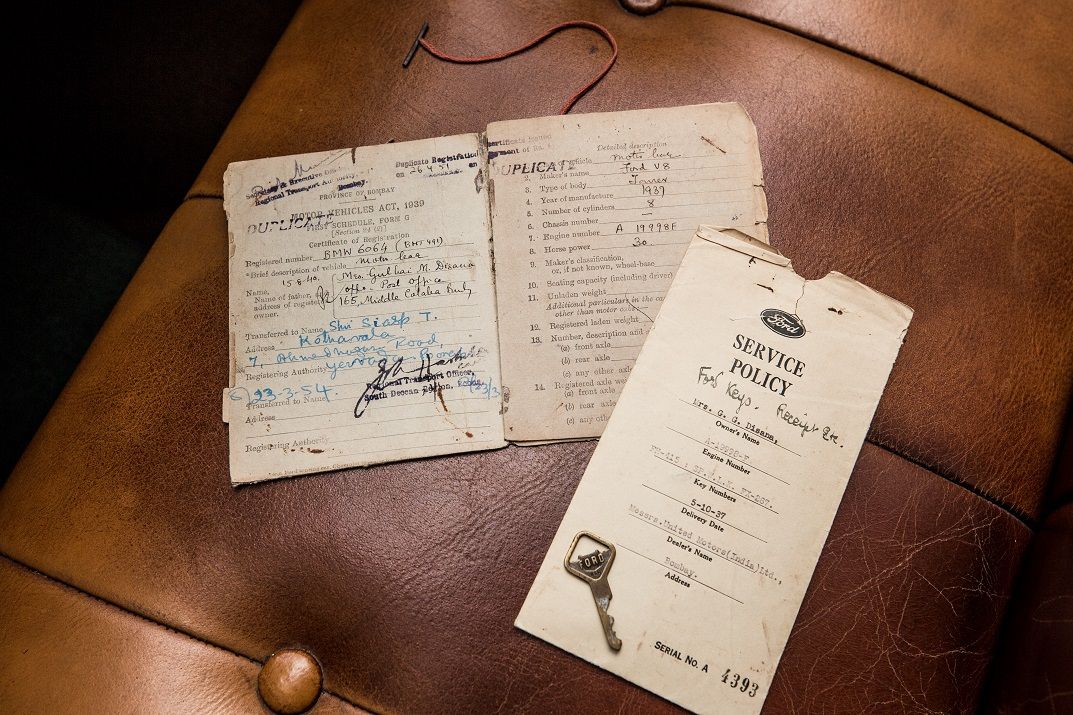 Regional Transport Authority,
Bombay.
PROVINCE OF BOMBAY
Duplicate Registration
on 26 4 51
DUPLICATE
MOTOR VEHICLES ACT, 1939
FIRST SCHEDULE, FORM G
Certificate of Registration
Registered number BMW 6064 (BMT 491)
Brief description of vehicle Motor Car
15-8-40.
Name, Mrs. Gulbai M. Disana
Name of father,
address of registered
owner. 165, Middle Colaba
Opp. Post Office
Transferred to Name Shri Siarp T.
Address Kothavala
7, Ahmednagar Road,
Registering Authority
23-3-54.
Regional Transport Officer,
South Deccan Region,
Transferred to Name
Address
Registering Authority
DUPLICATE
Detailed description
vehicle Motor Car
2. Maker's name Ford V8
3. Type of body Tourer
4. Year of manufacture 1937
5. Number of cylinders 8
6. Chassis number —
7. Engine number A 19998F
8. Horse power 30
9. Maker's classification,
or, if not known, wheel-base
10. Seating capacity (including driver)
11. Unladen weight
Additional particulars in the
other than motor
12. Registered laden weight
13. Number, description and
(a) front axle
(b) rear axle
(c) any other axle
14. Registered axle
(a) front axle
(b) rear axle
(c) any
Ford
SERVICE
POLICY
Ford
Keys. Receipt Etc.
Mrs. G. G. Disana,
Owner's Name
A-19998-F
Engine Number
Key Numbers
5-10-37
Delivery Date
Messrs.United Motors(India)Ltd.,
Dealer's Name
Bombay.
Address
FORD
SERIAL NO. A 4393